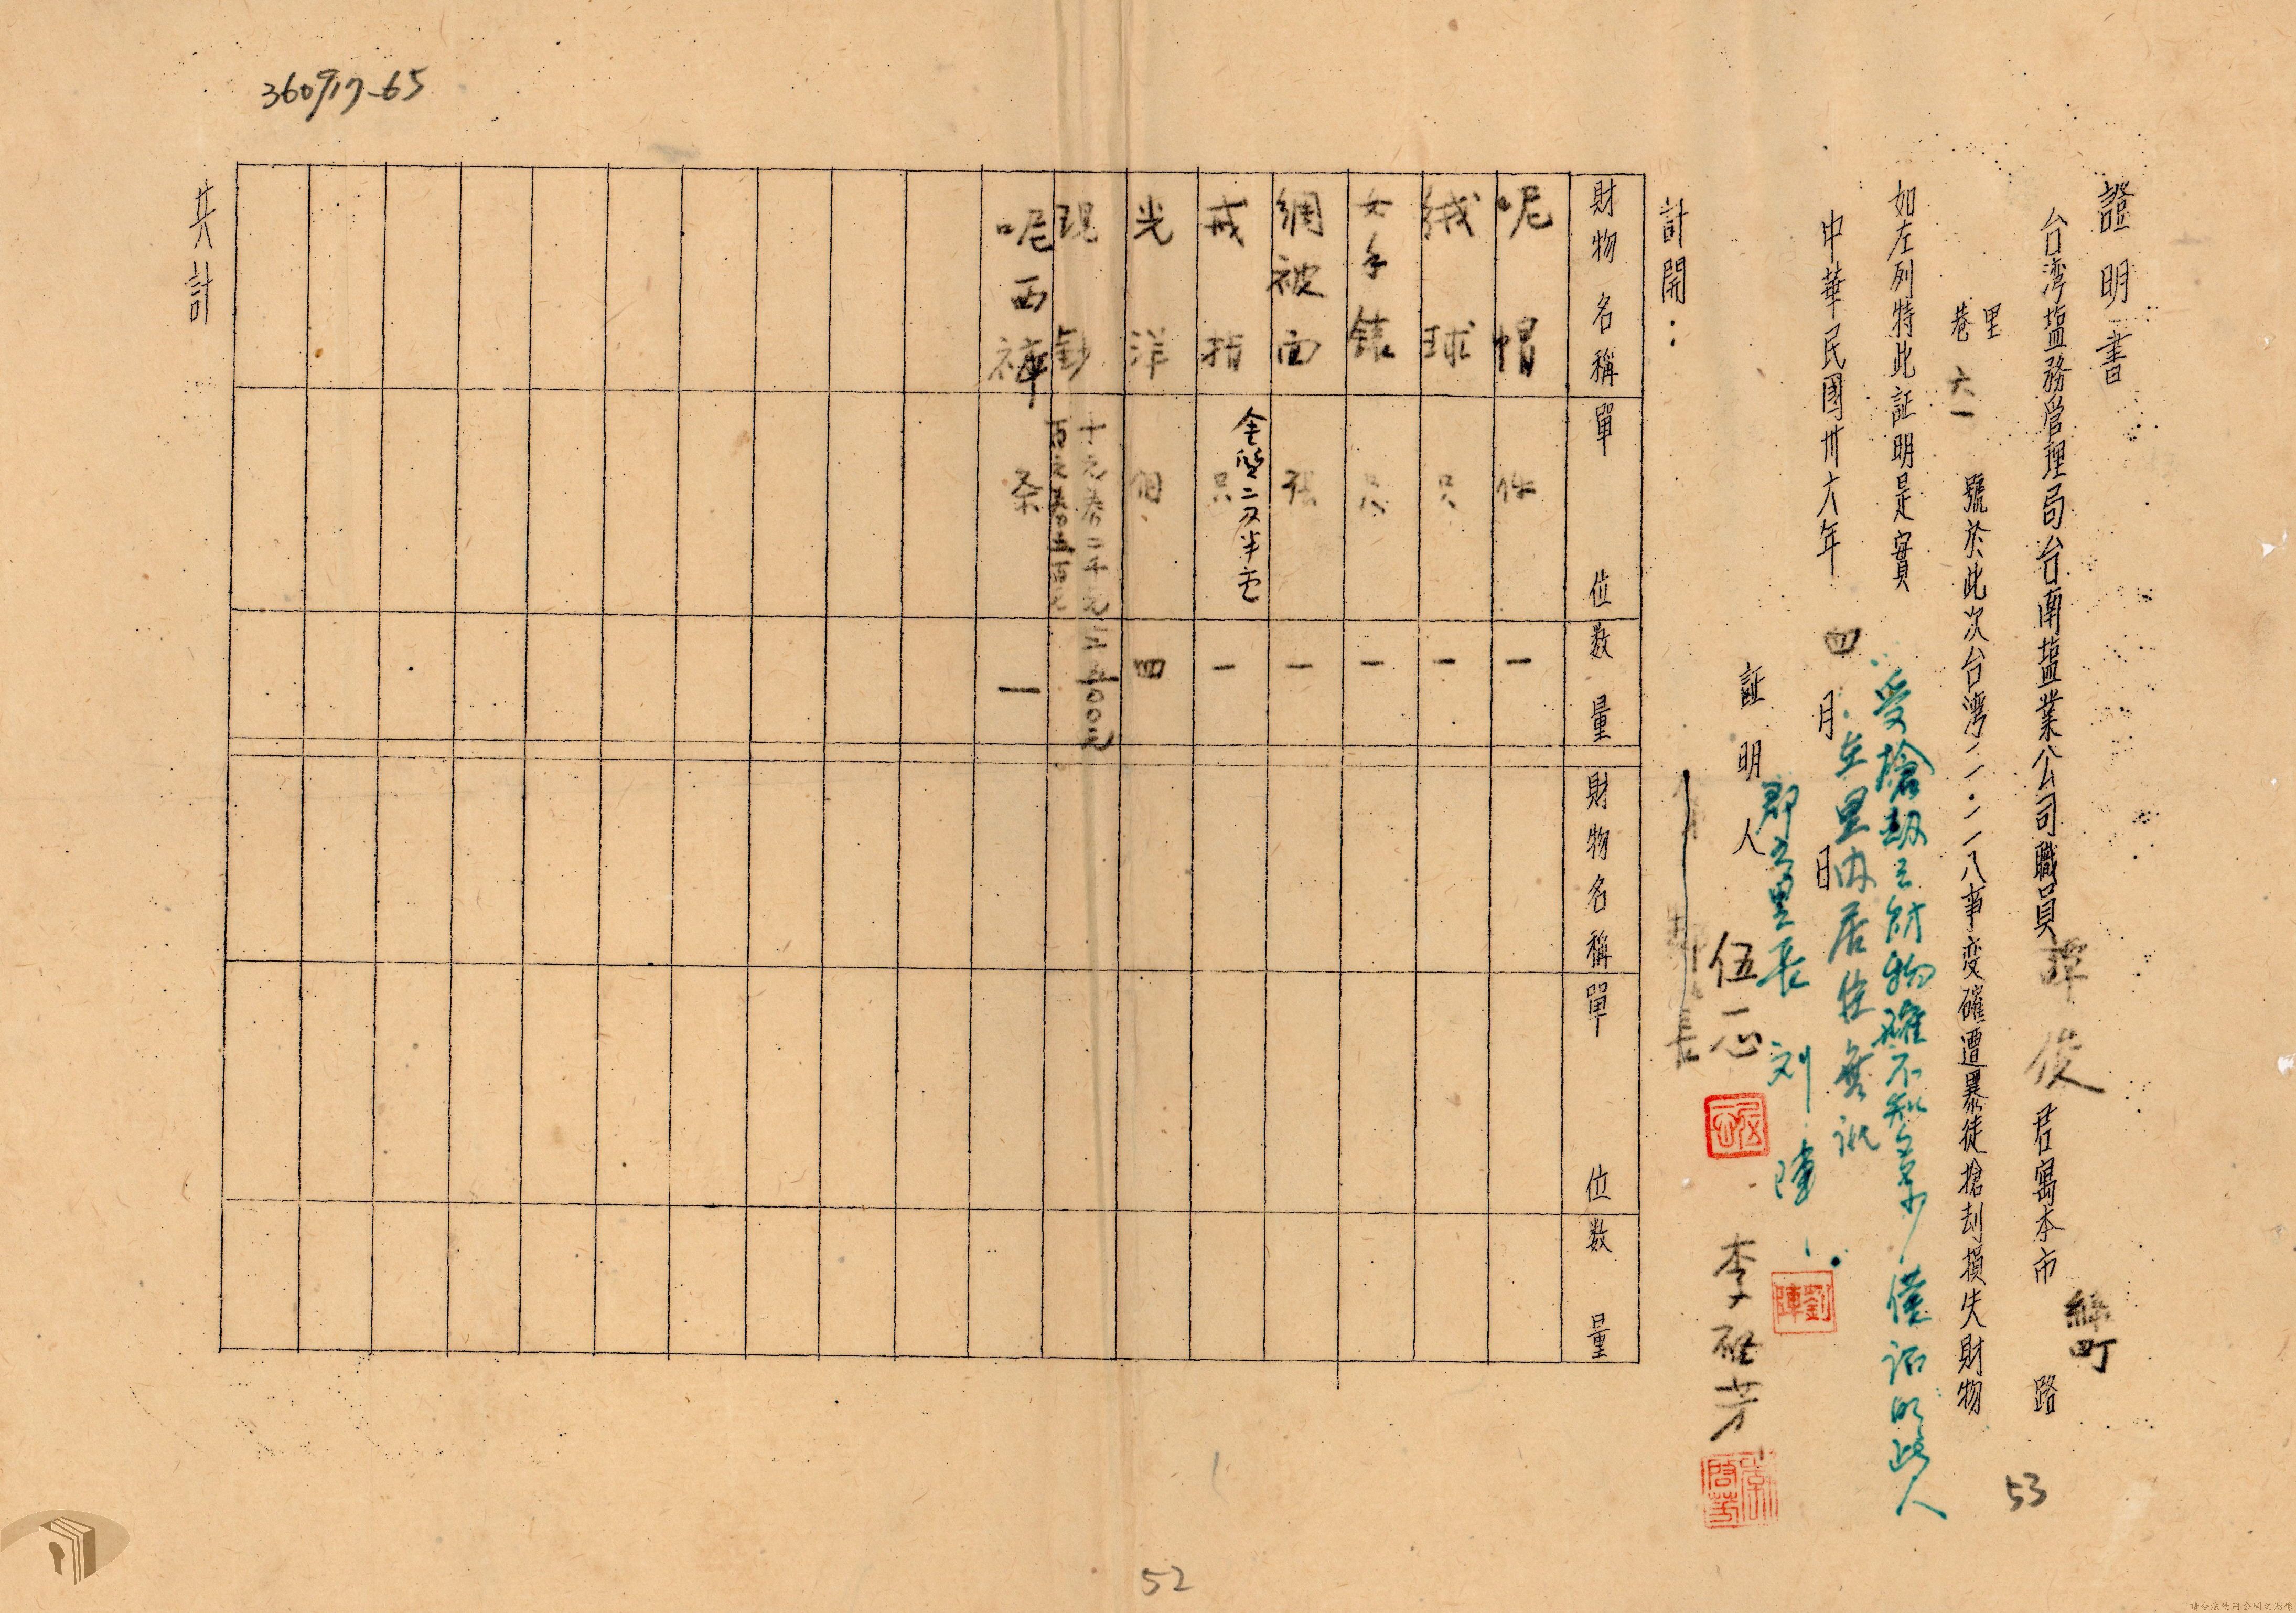 證明書
台湾塩務管理局台南塩業公司職員譚俊居寓本市綠町路
里
巷六一號於此次台湾二・二八事変確遭暴徒搶刦損失財物
如左列特此証明是實
受搶劫之財物確不知多少僅證明此人
在里內居住無訛
中華民國卅六年四月日
郡王里長 刘陣
劉陣
証明人 伍一心 李啟芳
長
計開：
財物名稱 單位 数量 財物名稱 單位 数量
呢帽 件 一
絨球 只 一
女手錶 只 一
綢被面 張 一
戒指 只 一
金質二又半
光洋 個 四
現鈔 十元券二千元 百元券五百元 二五〇〇元
呢西褲 条 一
共計
360917-65
53
52
請合法使用公開之影像